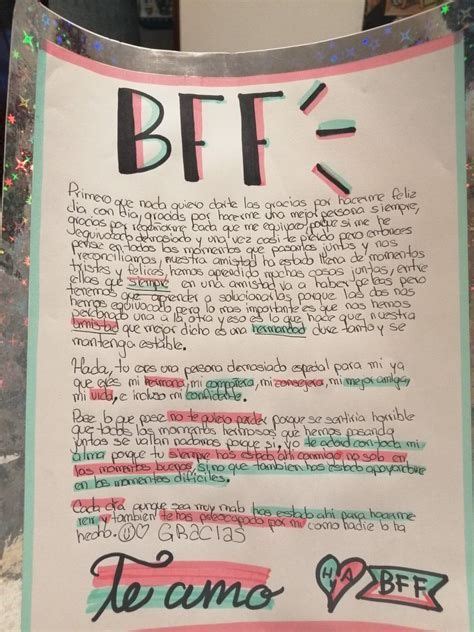 BFF
Primero que nada quiero darte las gracias por hacerme feliz
día con día, gracias por hacerme una mejor persona siempre,
gracias por regañarme cada que me equivoco, porque si me
equivocado demasiado y una vez casi te pierdo pero entonces
pense en todos los momentos que pasamos juntas y nos
reconciliamos, nuestra amistad ha estado llena de momentos
tristes y felices, hemos aprendido muchas cosas juntas, entre
ellas que siempre en una amistad va a haber peleas pero
tenemos que aprender a solucionarlas porque las dos nos
hemos equivocado pero lo más importante es que nos hemos
perdonado una a la otra y eso es lo que hace que, nuestra
amistad que mejor dicho es una hermandad dure tanto y se
mantenga estable.
tu eres una persona demasiado especial para mi ya
que eres mi hermana, mi compañera, mi consejera, mi mejor amiga,
mi vida, e incluso mi confidente.
Pase lo que pase no te quiero perder porque se sentiria horrible
que todos los momentos hermosos que hemos pasando
juntas se vallan porque si, yo te adoro con toda mi
alma porque tu siempre has estado ahí conmigo no solo en
los momentos buenos, si no que tambien has estado apoyandome
en los momentos dificiles.
Cada día aunque sea muy malo has estado ahí para hacerme
reir y tambien te has preocupado por mi como nadie lo ha
hecho. GRACIAS
Te amo
H A
BFF